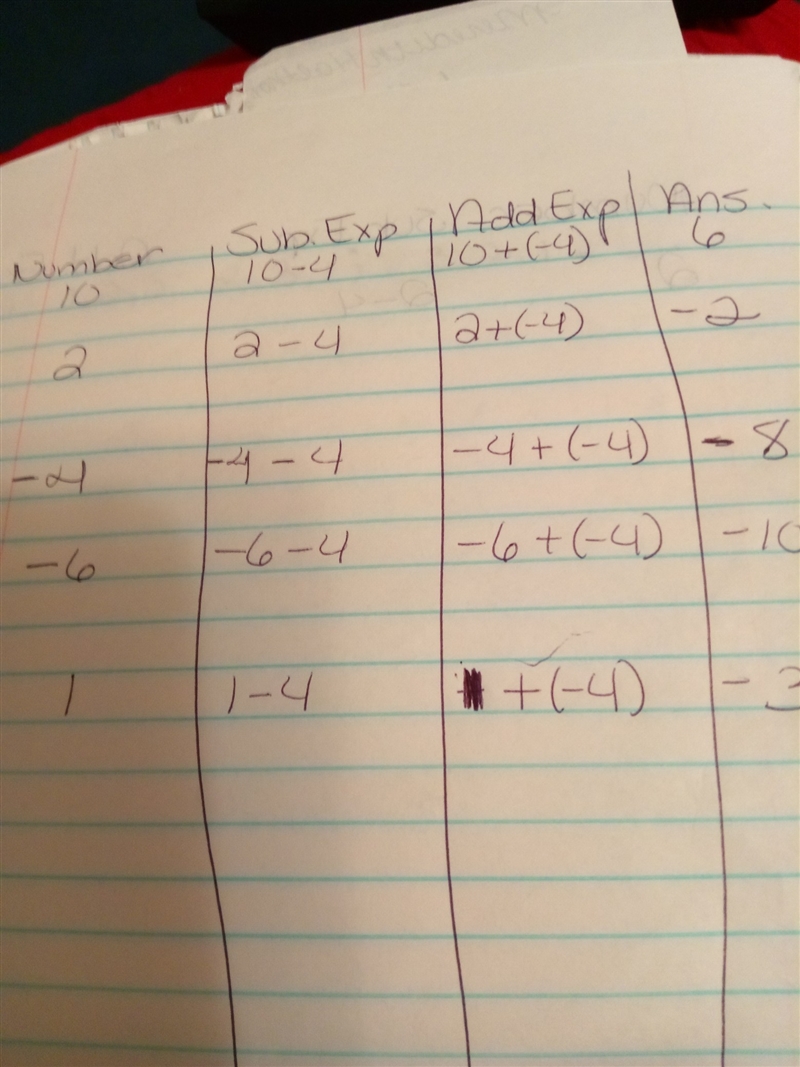 Number Sub. Exp Add Exp Ans.
10 10-4 10+(-4) 6
2 2-4 2+(-4) -2
-4 -4-4 -4+(-4) -8
-6 -6-4 -6+(-4) -10
1 1-4 +(-4) -3